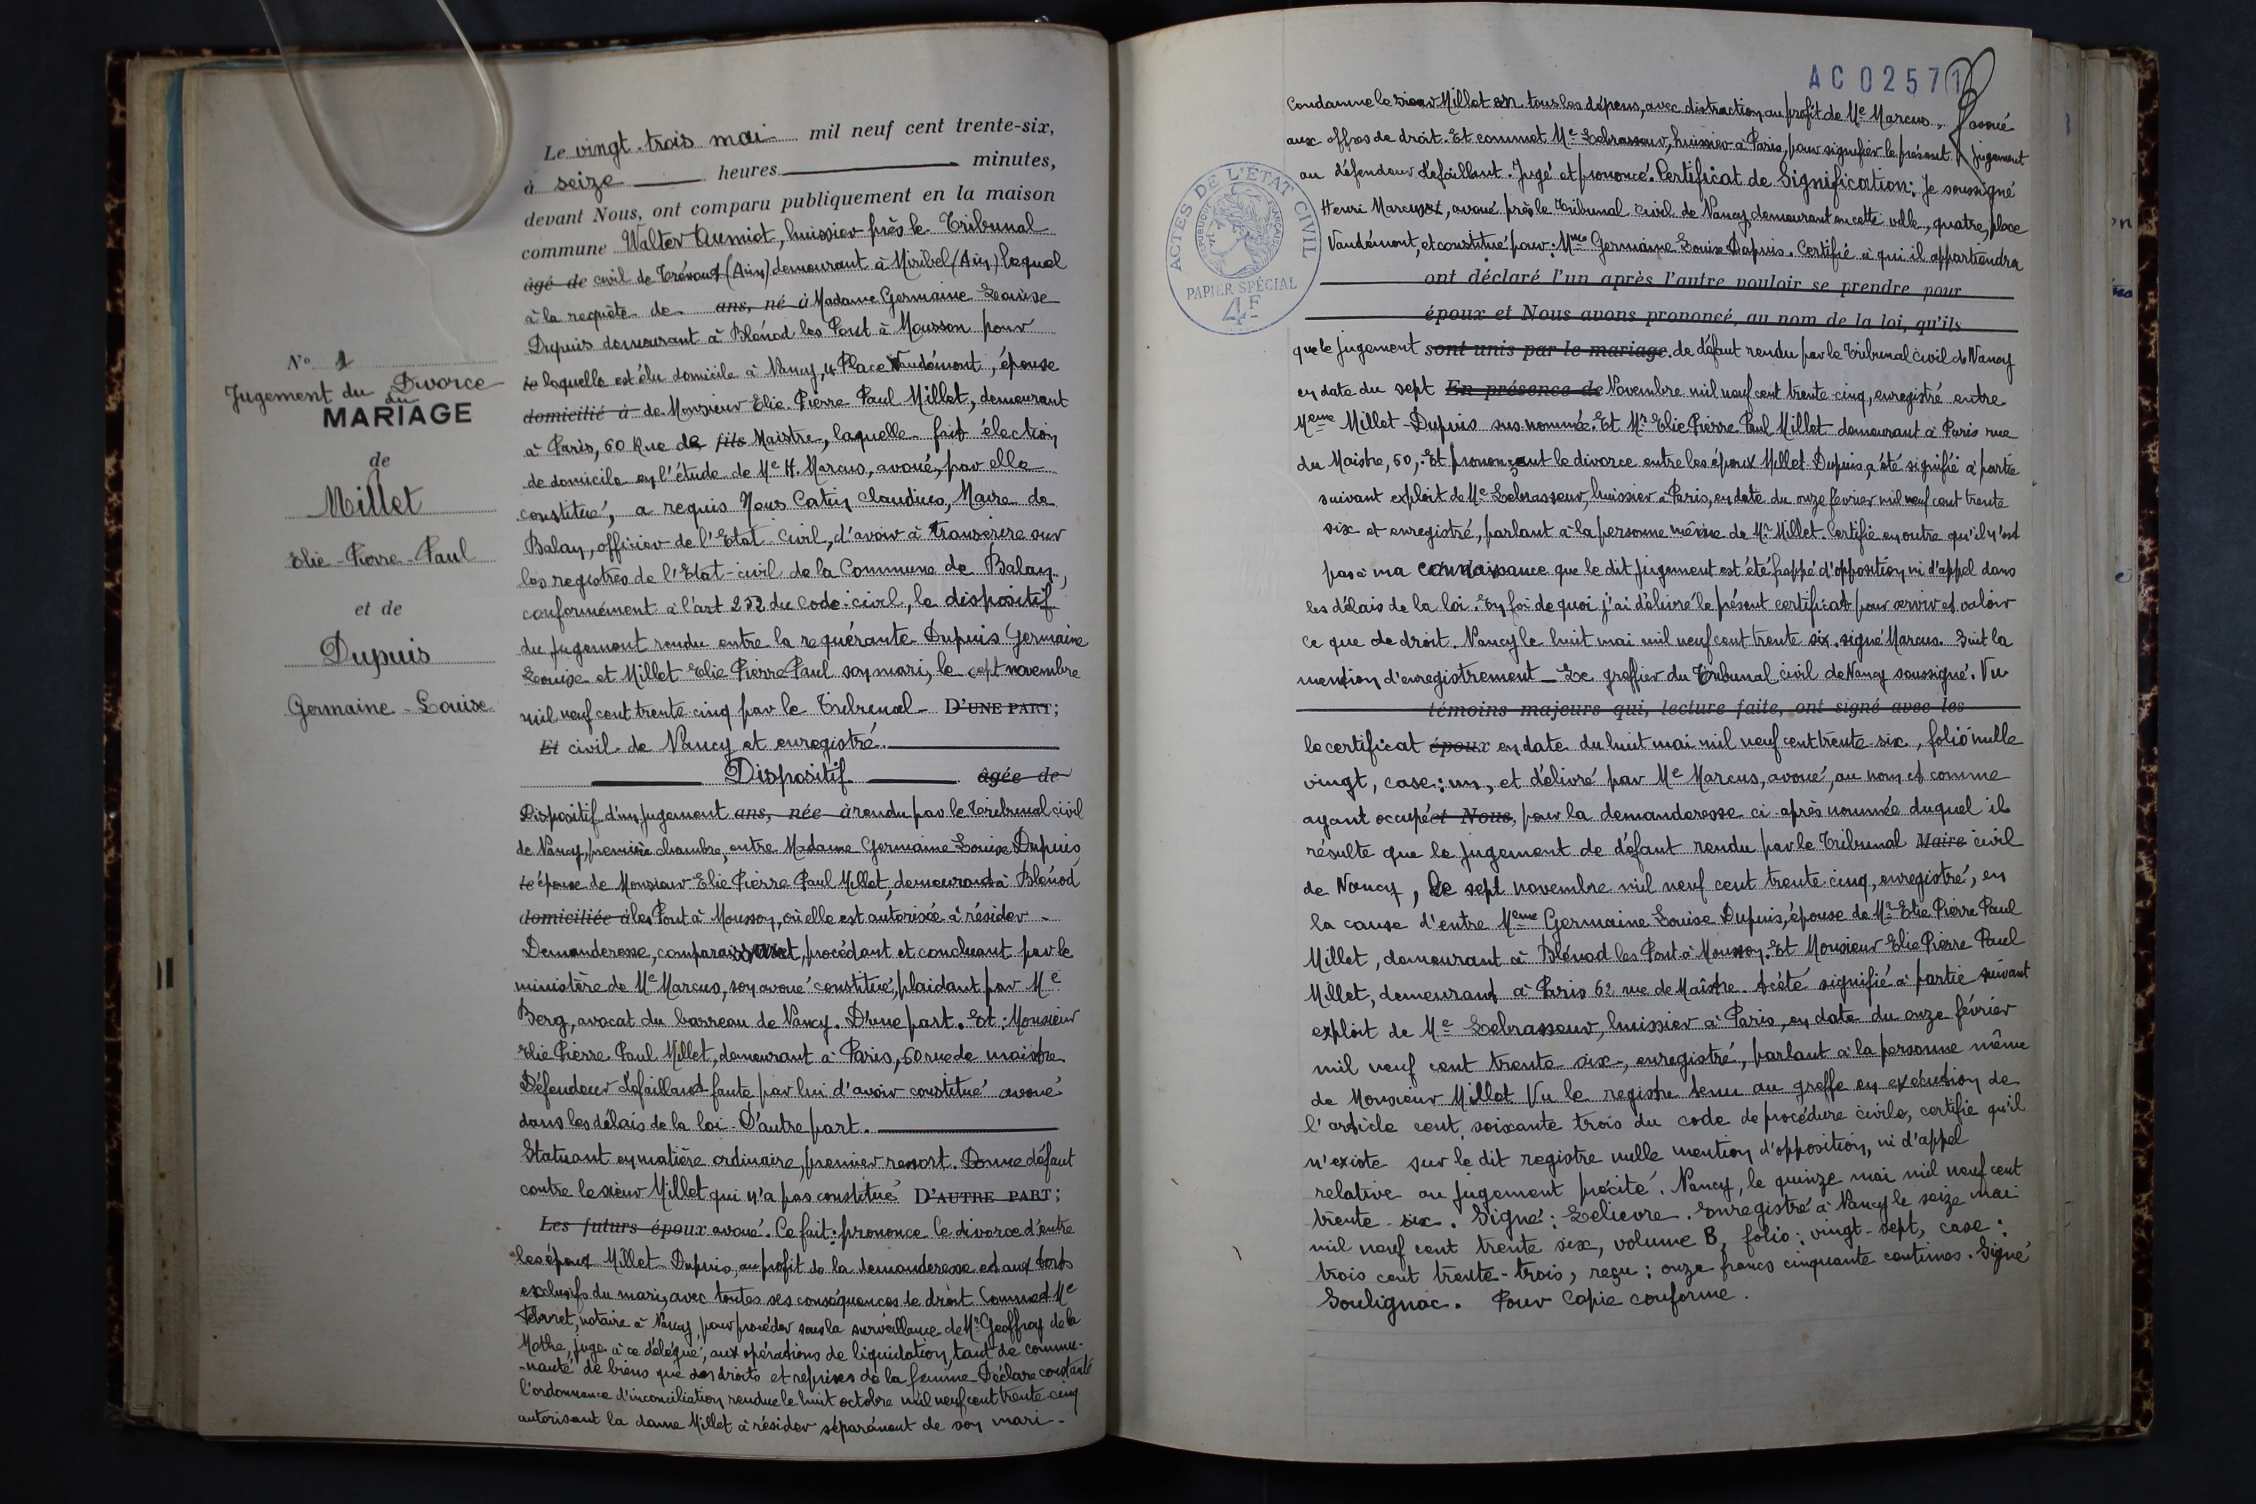 N° 1
Jugement du Divorce
du
MARIAGE
de
Millet
Elie-Pierre-Paul
et de
Dupuis
Germaine-Louise
Le vingt-trois mai mil neuf cent trente-six,
à seize heures minutes,
devant Nous, ont comparu publiquement en la maison
commune Walter Aumiot, huissier près le Tribunal
âgé de civil de Trévoux (Ain) demeurant à Miribel (Ain) lequel
à la requête de ans, né à Madame Germaine Louise
Dupuis demeurant à Blénod les Pont à Mousson pour
le laquelle est élu domicile à Nancy, 4 Place Vaudémont, épouse
domicilié à de Monsieur Elie Pierre Paul Millet, demeurant
à Paris, 60 Rue de fils Maistre, laquelle fait élection
de domicile en l'étude de Me H. Marcus, avoué, par elle
constitué, a requis Nous Catin Claudius, Maire de
Balan, officier de l'Etat-Civil, d'avoir à transcrire sur
les registres de l'Etat-civil de la Commune de Balan,
conformément à l'art 252 du Code civil, le dispositif
du jugement rendu entre la requérante Dupuis Germaine
Louise et Millet Elie Pierre Paul son mari, le sept novembre
mil neuf cent trente cinq par le Tribunal - D'UNE PART;
Et civil de Nancy et enregistré.
Dispositif âgée de
Dispositif d'un jugement ans, née à rendu par le Tribunal civil
de Nancy, première chambre, entre Madame Germaine Louise Dupuis
le épouse de Monsieur Elie Pierre Paul Millet, demeurant à Blénod
domiciliée à les Pont à Mousson, où elle est autorisée à résider -
Demanderesse, comparaissant, procédant et concluant par le
ministère de Me Marcus, son avoué constitué, plaidant par Me
Berg, avocat du barreau de Nancy. D'une part. Et: Monsieur
Elie Pierre Paul Millet, demeurant à Paris, 60 rue de maistre
Défendeur défaillant faute par lui d'avoir constitué avoué
dans les délais de la loi - D'autre part.
Statuant en matière ordinaire, premier ressort. Donne défaut
contre le sieur Millet qui n'a pas constitué D'AUTRE PART;
Les futurs époux avoué. Ce fait: prononce le divorce d'entre
les époux Millet-Dupuis, au profit de la demanderesse et aux torts
exclusifs du mari, avec toutes ses conséquences de droit. Commet Me
notaire à Nancy, pour procéder sous la surveillance de Mr Geoffroy de la
Mothe, juge à ce délégué, aux opérations de liquidation, tant de commu-
-nauté de biens que des droits et reprises de la femme. Déclare constante
l'ordonnance d'inconciliation rendue le huit octobre mil neuf cent trente cinq
autorisant la dame Millet à résider séparément de son mari -
AC 02571
Condamne le sieur Millet en tous les dépens, avec distraction au profit de Me Marcus, avoué
aux offres de droit. Et commet Me Lebrasseur, huissier à Paris, pour signifier le présent jugement
au défendeur défaillant. Jugé et prononcé. Certificat de Signification: Je soussigné
Henri Marcus, avoué près le Tribunal civil de Nancy demeurant en cette ville, quatre, place
Vaudémont, et constitué pour: Mme Germaine Louise Dupuis. Certifie à qui il appartiendra
ACTES DE L'ETAT CIVIL
RÉPUBLIQUE FRANÇAISE
PAPIER SPÉCIAL
4F
ont déclaré l'un après l'autre vouloir se prendre pour
époux et Nous avons prononcé, au nom de la loi, qu'ils
que le jugement sont unis par le mariage. de défaut rendu par le Tribunal civil de Nancy
en date du sept En présence de Novembre mil neuf cent trente-cinq, enregistré entre
Meme Millet-Dupuis sus-nommée. Et Mr Elie Pierre Paul Millet demeurant à Paris rue
du Maistre, 60, Et prononçant le divorce entre les époux Millet-Dupuis, a été signifié à partie
suivant exploit de Me Lebrasseur, huissier à Paris, en date du onze février mil neuf cent trente
six et enregistré, parlant à la personne même de Mr Millet. Certifie en outre qu'il n'est
pas à ma connaissance que le dit jugement est été frappé d'opposition ni d'appel dans
les délais de la loi. En foi de quoi j'ai délivré le présent certificat pour servir et valoir
ce que de droit. Nancy le huit mai mil neuf cent trente six. signé Marcus. Suit la
mention d'enregistrement - Le greffier du Tribunal civil de Nancy soussigné. Vu
témoins majeurs qui, lecture faite, ont signé avec les
le certificat époux en date du huit mai mil neuf cent trente-six, folio mille
vingt, case: un, et délivré par Me Marcus, avoué, au nom et comme
ayant occupé et Nous, pour la demanderesse ci-après nommée duquel il
résulte que le jugement de défaut rendu par le Tribunal Maire civil
de Nancy, le sept novembre mil neuf cent trente-cinq, enregistré, en
la cause d'entre Meme Germaine Louise Dupuis, épouse de Mr Elie Pierre Paul
Millet, demeurant à Blénod les Pont à Mousson. Et Monsieur Elie Pierre Paul
Millet, demeurant à Paris 62 rue de Maîstre. A été signifié à partie suivant
exploit de Me Lebrasseur, huissier à Paris, en date du onze février
mil neuf cent trente six-, enregistré, parlant à la personne même
de Monsieur Millet. Vu le registre tenu au greffe en exécution de
l'article cent soixante trois du code de procédure civile, certifie qu'il
n'existe sur le dit registre nulle mention d'opposition, ni d'appel
relative au jugement précité. Nancy, le quinze mai mil neuf cent
trente-six. Signé: Lelievre. Enregistré à Nancy le seize mai
mil neuf cent trente six, volume B, folio: vingt-sept, case:
trois cent trente-trois, reçu: onze francs cinquante centimes. Signé
Soulignac. Pour Copie conforme.